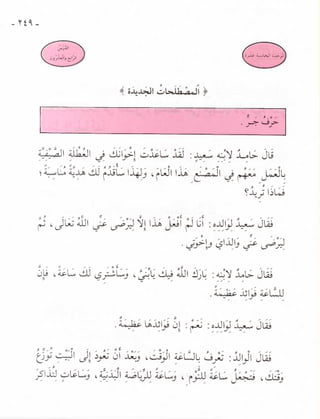 - ٢٤٩ -
الدرس
الرابع والعشرون
الوحدة الخامسة عشرة
﴿ المصطلحات الجديدة ﴾
حَرْفُ جَرٍّ .
قَالَ خَالِدٌ لِابْنِهِ سَعِيدٍ : لَقَدْ سَاعَدْتَ إِخْوَانَكَ فِي العُطْلَةِ الصَّيْفِيَّةِ
بِالعَمَلِ مَعَهُمْ فِي المَصْنَعِ هَذَا العَامَ ، وَلِهَذَا سَأُقَدِّمُ لَكَ هَدِيَّةً مُنَاسِبَةً ؛
فَمَاذَا تُرِيدُ ؟
فَقَالَ سَعِيدٌ لِوَالِدِهِ : أَنَا لَمْ أَفْعَلْ هَذَا إِلَّا لِيَرْضَى عَنِّي اللهُ تَعَالَى ، ثُمَّ
لِيَرْضَى عَنِّي وَالِدَايَ وَإِخْوَتِي .
فَقَالَ خَالِدٌ لِابْنِهِ : بَارَكَ اللهُ فِيكَ يَا بُنَيَّ ، وَسَأَشْتَرِي لَكَ سَاعَةً ، فَإِنَّ
لِلسَّاعَةِ فَوَائِدَ عَظِيمَةً .
فَقَالَ سَعِيدٌ لِوَالِدِهِ : نَعَمْ : إِنَّ فَوَائِدَهَا عَظِيمَةٌ .
فَقَالَ الوَالِدُ : تَعْرِفُ بِالسَّاعَةِ الوَقْتَ ، وَبَعْدَ أَنْ تَعُودَ إِلَى البَيْتِ تُوَزِّعُ
وَقْتَكَ ، فَتَجْعَلُ سَاعَةً لِلنَّوْمِ ، وَسَاعَةً لِلرِّيَاضَةِ البَدَنِيَّةِ ، وَسَاعَاتٍ لِلمُذَاكَرَةِ